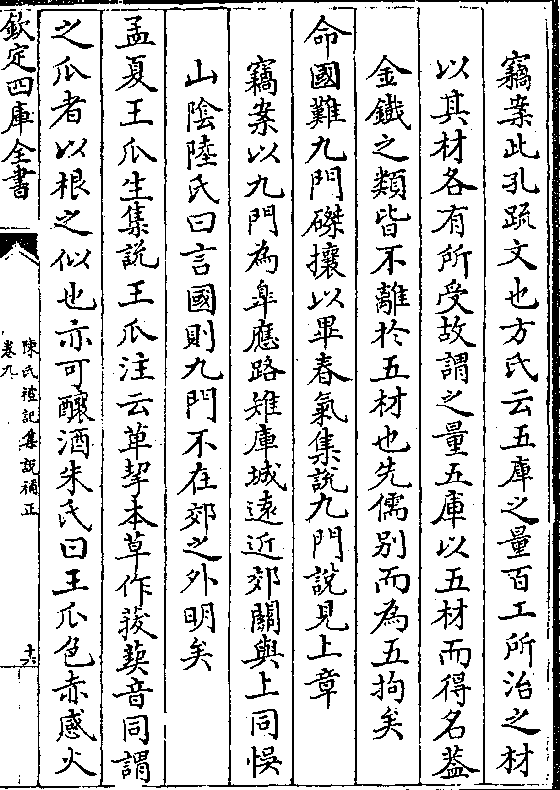 竊案此孔疏文也方氏云五庫之量百工所治之材
以其材各有所受故謂之量五庫以五材而得名葢
金鐡之類皆不離於五材也先儒别而為五拘矣
命國難九門磔攘以畢春氣集説九門說見上章
竊案以九門為臯應路雉庫城遠近郊關與上同悞
山陰陸氏曰言國則九門不在郊之外明矣
孟夏王瓜生集說王瓜注云萆挈本草作菝葜音同謂
之瓜者以根之似也亦可釀酒朱氏曰王瓜色赤感火
欽定四庫全書
陳氏禮記集說補正
卷九
十六